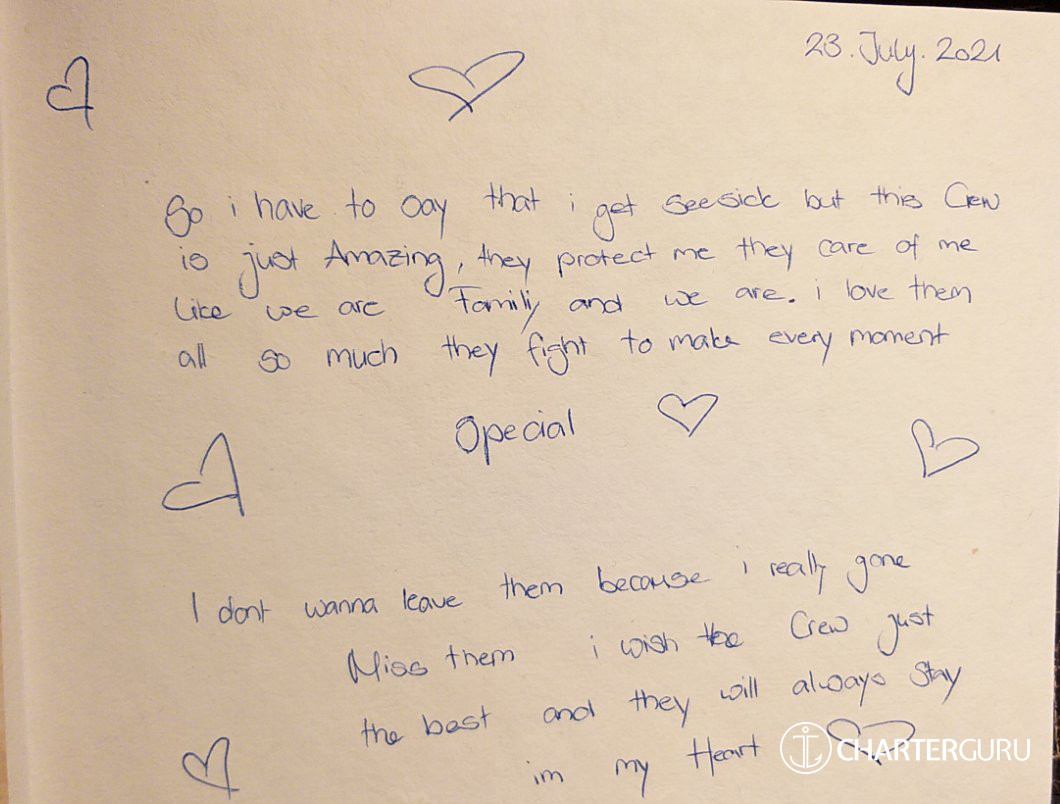 23. July. 2021
So i have to say that i get seesick but this Crew
is just Amazing, they protect me they care of me
like we are Family and we are. i love them
all so much they fight to make every moment
Special
I dont wanna leave them because i really gone
Miss them i wish the Crew just
the best and they will always stay
im my Heart
CHARTERGURU